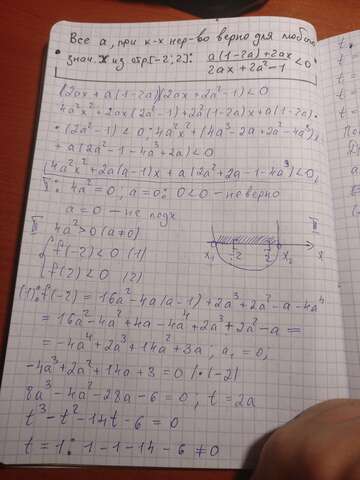 Все а, при к-х нер-во верно для любого
знач. х из отр[-2; 2]: a(1-2a)+2ax / 2ax+2a²-1 < 0
(2ax+a(1-2a))(2ax+2a²-1)<0
4a²x²+2ax(2a²-1)+2a(1-2a)x+a(1-2a)·
·(2a²-1)<0; 4a²x²+(4a³-2a+2a²-4a³)x
+a(2a²-1-4a³+2a)<0
4a²x²+2a(a-1)x+a(2a²+2a-1-4a³)<0,
I: 4a²=0, a=0: 0<0 – неверно
a=0 – не подх
II 4a²>0 (a≠0)
f(-2)<0 (1)
f(2)<0 (2)
x₁ -2 2 x₂ x
(1): f(-2)=16a²-4a(a-1)+2a³+2a²-a-4a⁴
=16a²-4a²+4a-4a⁴+2a³+2a²-a=
=-4a⁴+2a³+14a²+3a; a₁=0,
-4a³+2a²+14a+3=0 |·(-2)
8a³-4a²-28a-6=0; t=2a
t³-t²-14t-6=0
t=1: 1-1-14-6≠0